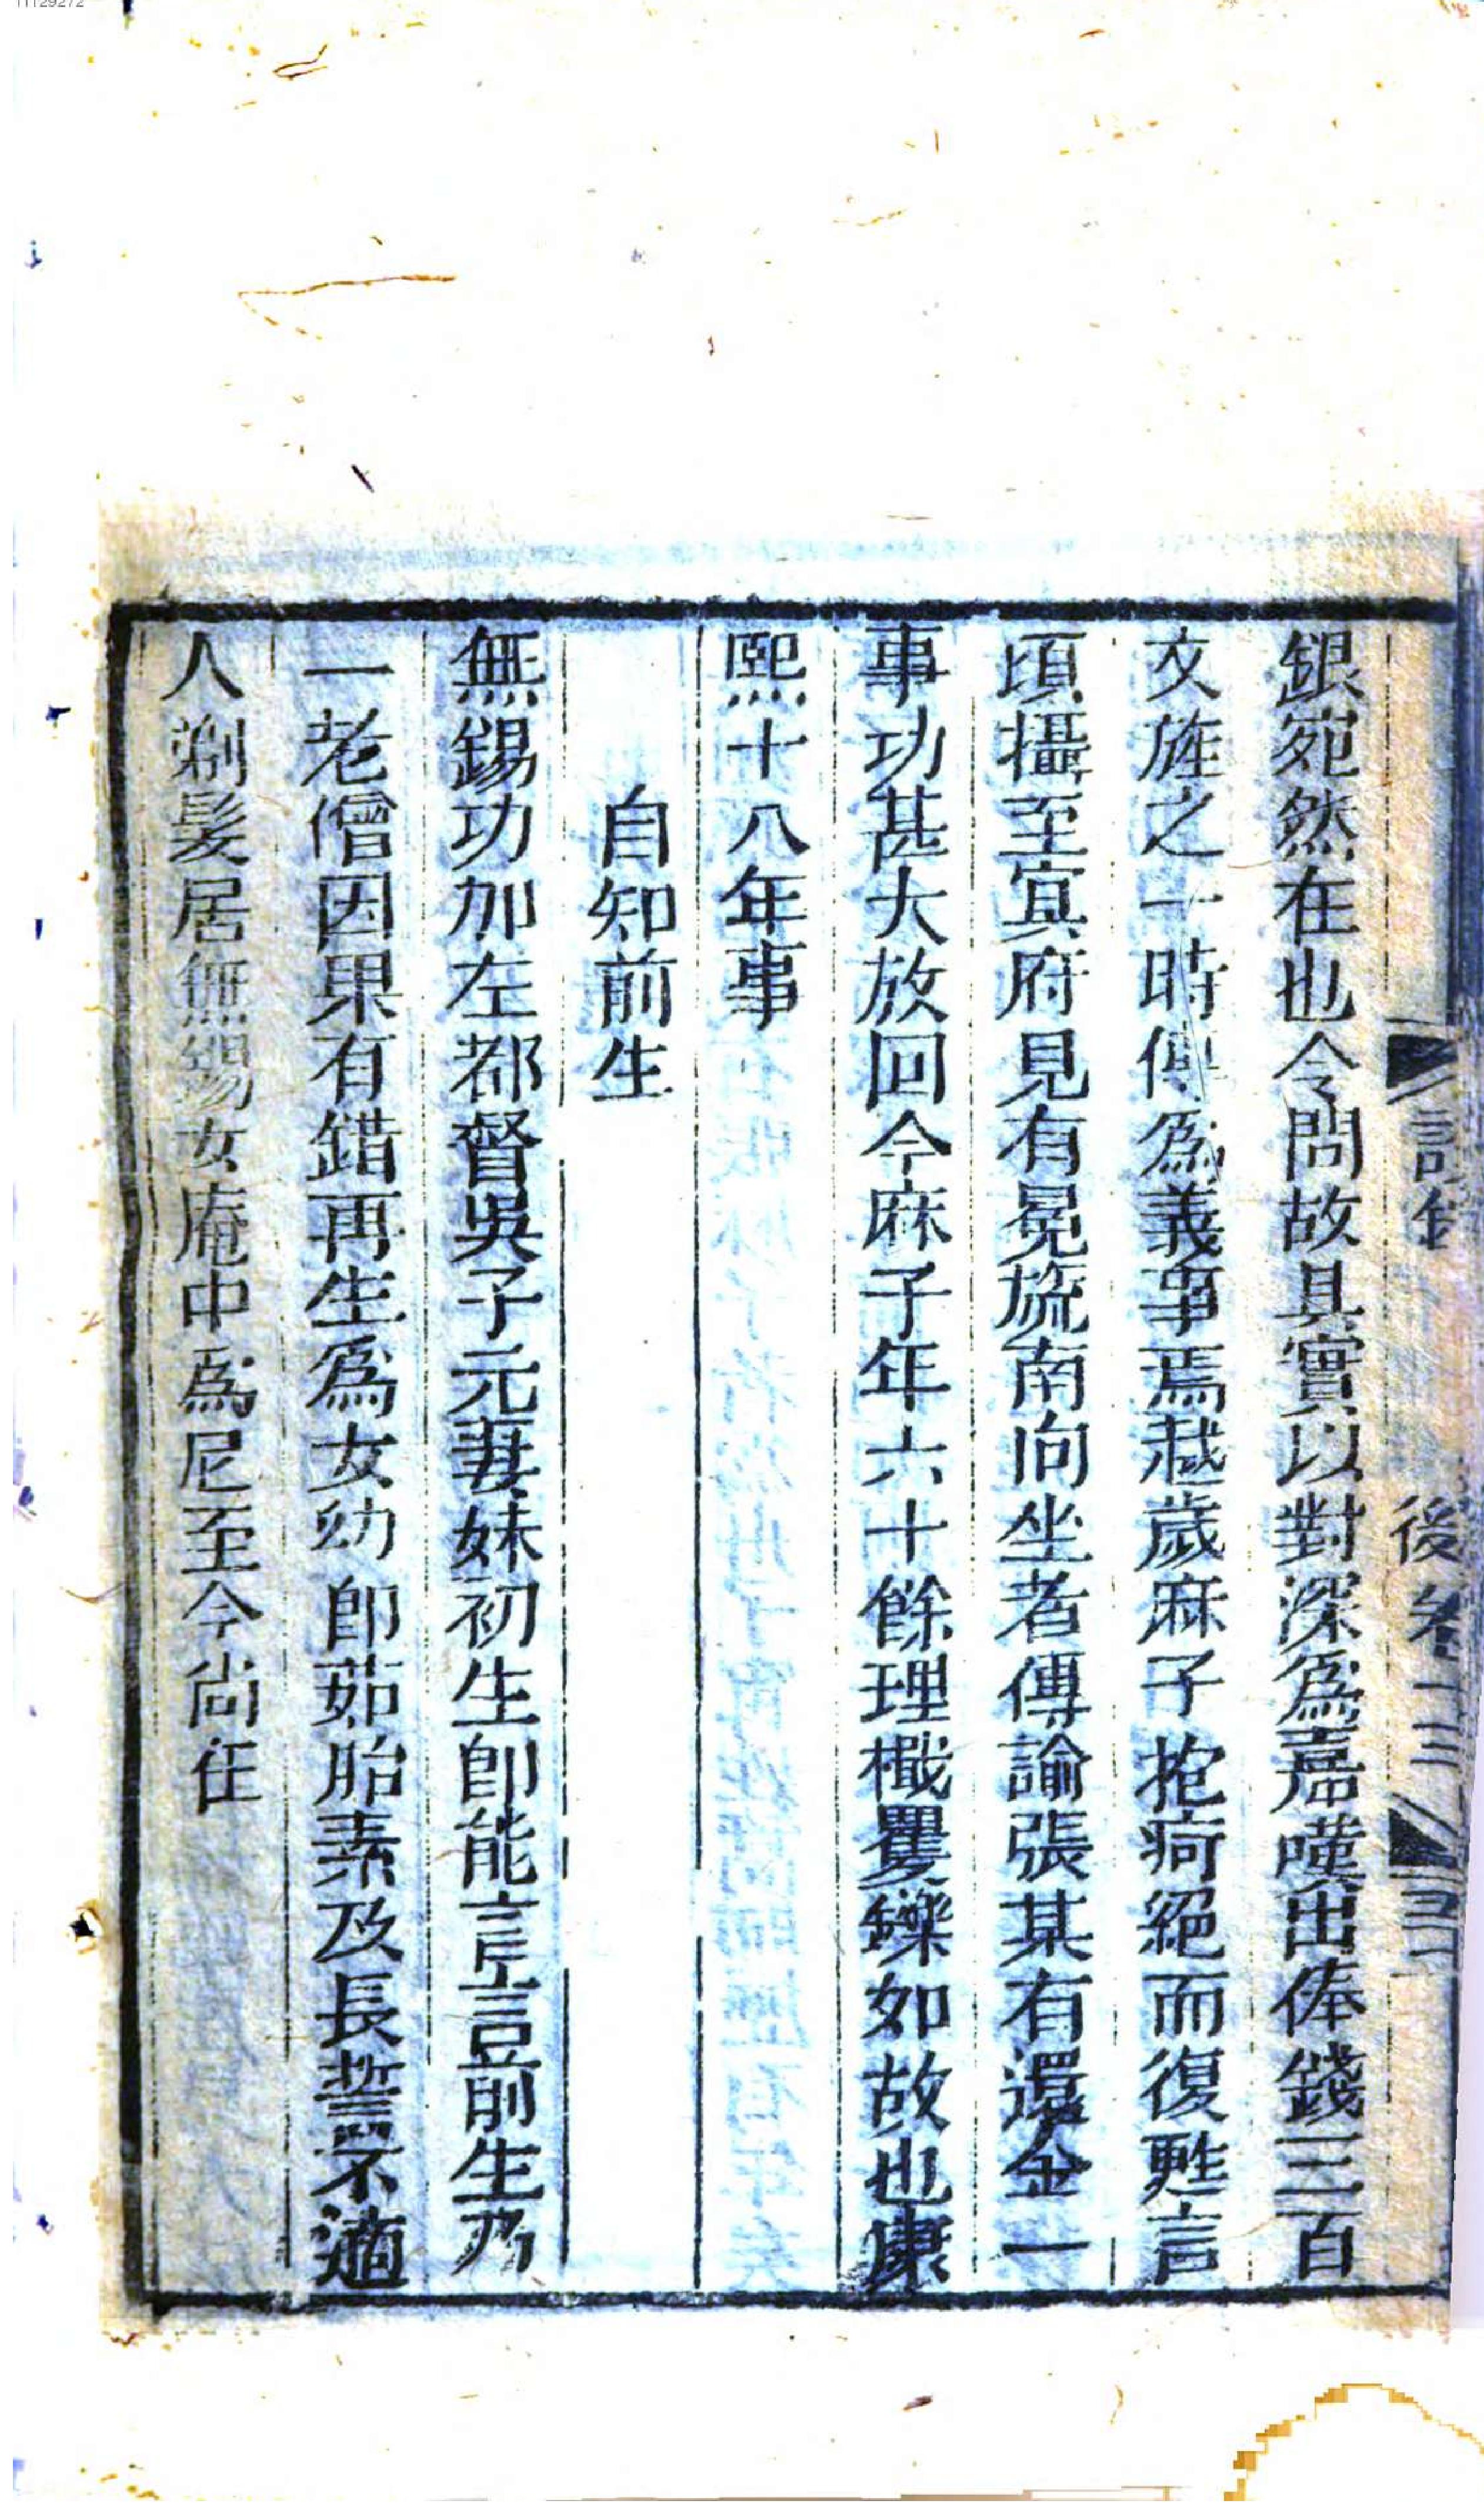 銀宛然在也令問故具實以對深爲嘉嘆出俸錢三百
文旌之一時傳爲義事焉越歲麻子抱疴絕而復甦言
頃攝至冥府見有冕旒南向坐者傳諭張某有還金一
事功甚大放回今麻子年六十餘理檝矍鑠如故也康
熙十八年事
自知前生
無錫功加左都督吳子元妻妹初生卽能言言前生乃
一老僧因果有錯再生爲女幼卽茹胎素及長誓不適
人剃髮居無錫女庵中爲尼至今尚在
後卷三